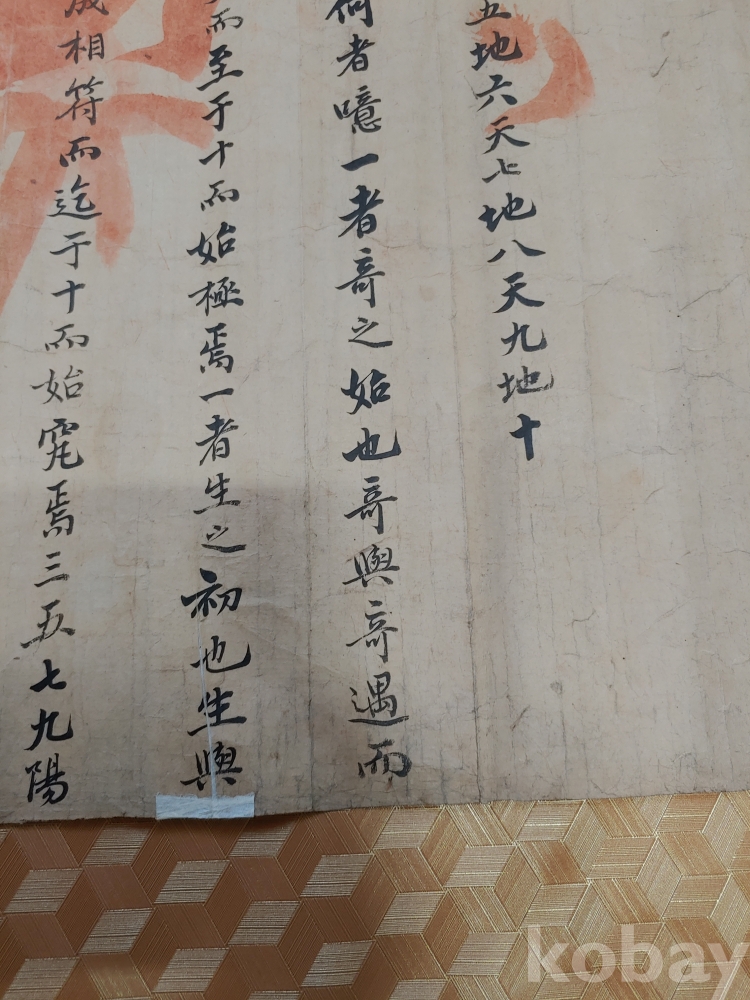 五地六天七地八天九地十
何者噫一者奇之始也奇與奇遇而
而至于十而始極焉一者生之初也生與
成相符而迄于十而始究焉三五七九陽
kobay